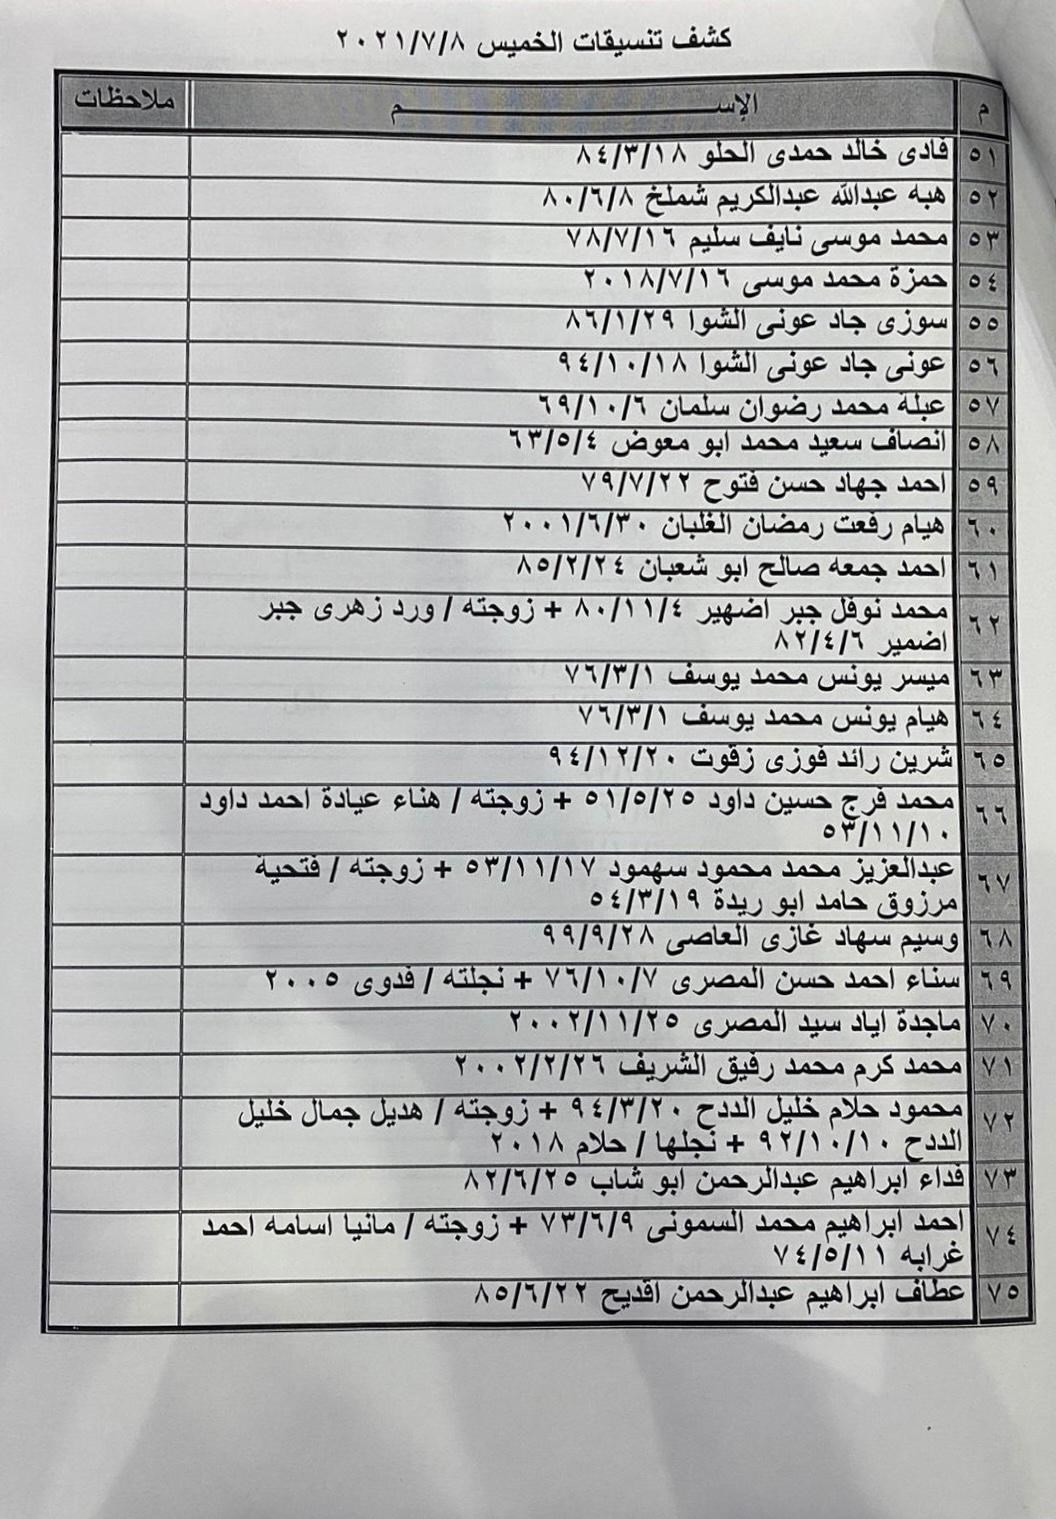 كشف تنسيقات الخميس ٢٠٢١/٧/٨
م الإســــــم ملاحظات
٥١ فادى خالد حمدى الحلو ٨٤/٣/١٨
٥٢ هبه عبدالله عبدالكريم شملخ ٨٠/٦/٨
٥٣ محمد موسى نايف سليم ٧٨/٧/١٦
٥٤ حمزة محمد موسى ٢٠١٨/٧/١٦
٥٥ سوزى جاد عونى الشوا ٨٦/١/٢٩
٥٦ عونى جاد عونى الشوا ٩٤/١٠/١٨
٥٧ عبلة محمد رضوان سلمان ٦٩/١٠/٦
٥٨ انصاف سعيد محمد ابو معوض ٦٣/٥/٤
٥٩ احمد جهاد حسن فتوح ٧٩/٧/٢٢
٦٠ هيام رفعت رمضان الغلبان ٢٠٠١/٦/٣٠
٦١ احمد جمعه صالح ابو شعبان ٨٥/٢/٢٤
٦٢ محمد نوفل جبر اضهير ٨٠/١١/٤ + زوجته / ورد زهرى جبر
اضمير ٨٢/٤/٦
٦٣ ميسر يونس محمد يوسف ٧٦/٣/١
٦٤ هيام يونس محمد يوسف ٧٦/٣/١
٦٥ شرين رائد فوزى زقوت ٩٤/١٢/٢٠
٦٦ محمد فرج حسين داود ٥١/٥/٢٥ + زوجته / هناء عيادة احمد داود
٥٣/١١/١٠
٦٧ عبدالعزيز محمد محمود سهمود ٥٣/١١/١٧ + زوجته / فتحية
مرزوق حامد ابو ريدة ٥٤/٣/١٩
٦٨ وسيم سهاد غازى العاصى ٩٩/٩/٢٨
٦٩ سناء احمد حسن المصرى ٧٦/١٠/٧ + نجلته / فدوى ٢٠٠٥
٧٠ ماجدة اياد سيد المصرى ٢٠٠٢/١١/٢٥
٧١ محمد كرم محمد رفيق الشريف ٢٠٠٢/٢/٢٦
٧٢ محمود حلام خليل الددح ٩٤/٣/٢٠ + زوجته / هديل جمال خليل
الددح ٩٢/١٠/١٠ + نجلها / حلام ٢٠١٨
٧٣ فداء ابراهيم عبدالرحمن ابو شاب ٨٢/٦/٢٥
٧٤ احمد ابراهيم محمد السمونى ٧٣/٦/٩ + زوجته / مانيا اسامه احمد
غرابه ٧٤/٥/١١
٧٥ عطاف ابراهيم عبدالرحمن اقديح ٨٥/٦/٢٢